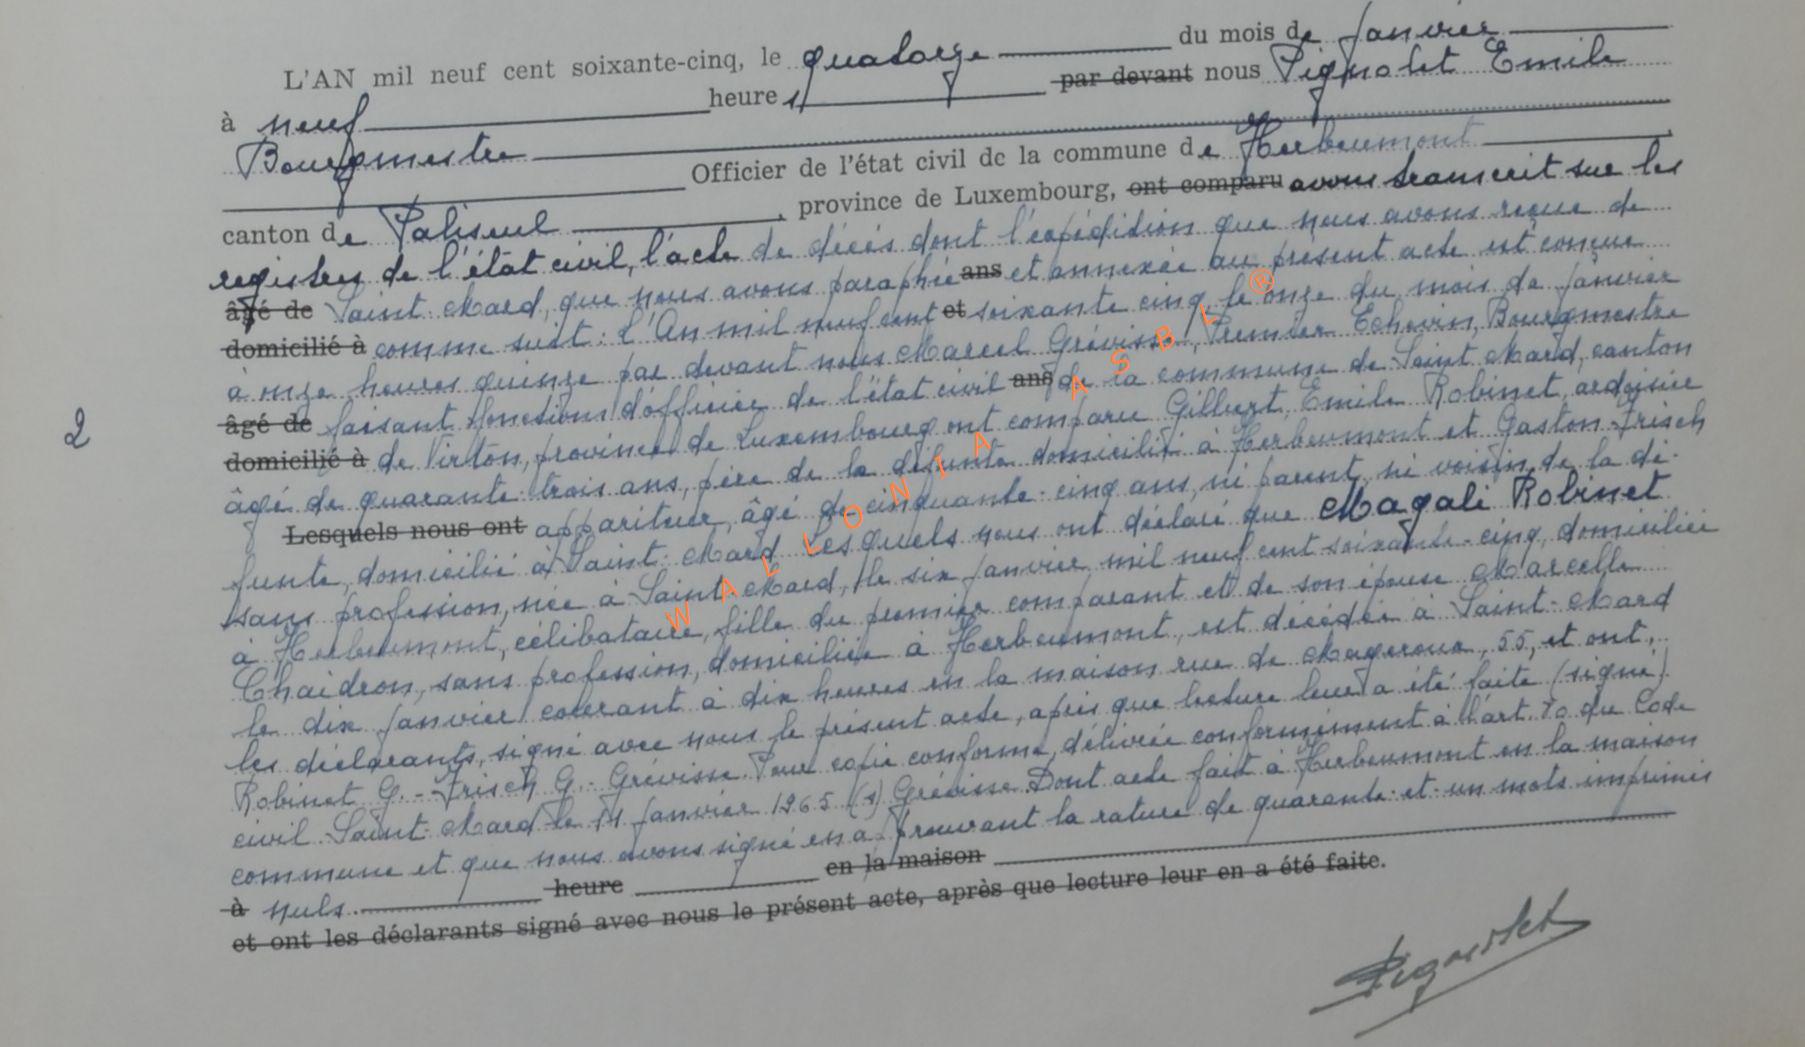 L'AN mil neuf cent soixante-cinq, le quatorze du mois de janvier
à neuf heure s par devant nous Pignolet Emile
Bourgmestre
Officier de l'état civil de la commune de Herbeumont
canton de Paliseul, province de Luxembourg, ont comparu avons transcrit sur les
registres de l'état civil, l'acte de décès dont l'expédition que nous avons reçue de
âgé de Saint-Mard, que nous avons paraphée ans et annexée au présent acte est conçue
domicilié à comme suit: L'An mil neuf cent et soixante cinq, le onze du mois de janvier
à onze heures quinze par devant nous Marcel Grévisse, Premier Echevin, Bourgmestre
âgé de faisant fonctions d'officier de l'état civil ans de la commune de Saint-Mard, canton
domicilié à de Virton, province de Luxembourg ont comparu Gilbert, Emile Robinet, ardoisier
âgé de quarante-trois ans, père de la défunte domicilié à Herbeumont et Gaston Frisch
Lesquels nous ont appariteur, âgé de cinquante-cinq ans, ni parent, ni voisin de la dé-
funte, domicilié à Saint-Mard Lesquels nous ont déclaré que Magali Robinet
sans profession, née à Saint-Mard, le six janvier mil neuf cent soixante-cinq, domiciliée
à Herbeumont, célibataire, fille du premier comparant et de son épouse Marcelle
Chaidron, sans profession, domiciliée à Herbeumont, est décédée à Saint-Mard
le dix janvier courant à dix heures en la maison rue de Mageroux, 55, et ont
les déclarants, signé avec nous le présent acte, après que lecture leur a été faite (signé)
Robinet G. - Frisch G. - Grévisse. Pour copie conforme, délivrée conformément à l'art. 70 du Code
civil. Saint-Mard le 11 janvier 1965 (s) Grévisse. Dont acte fait à Herbeumont en la maison
commune et que nous avons signé en approuvant la rature de quarante-et-un mots imprimés
à nuls. heure en la maison
et ont les déclarants signé avec nous le présent acte, après que lecture leur en a été faite.
2
Pignolet
WALLONIA ASBL ®